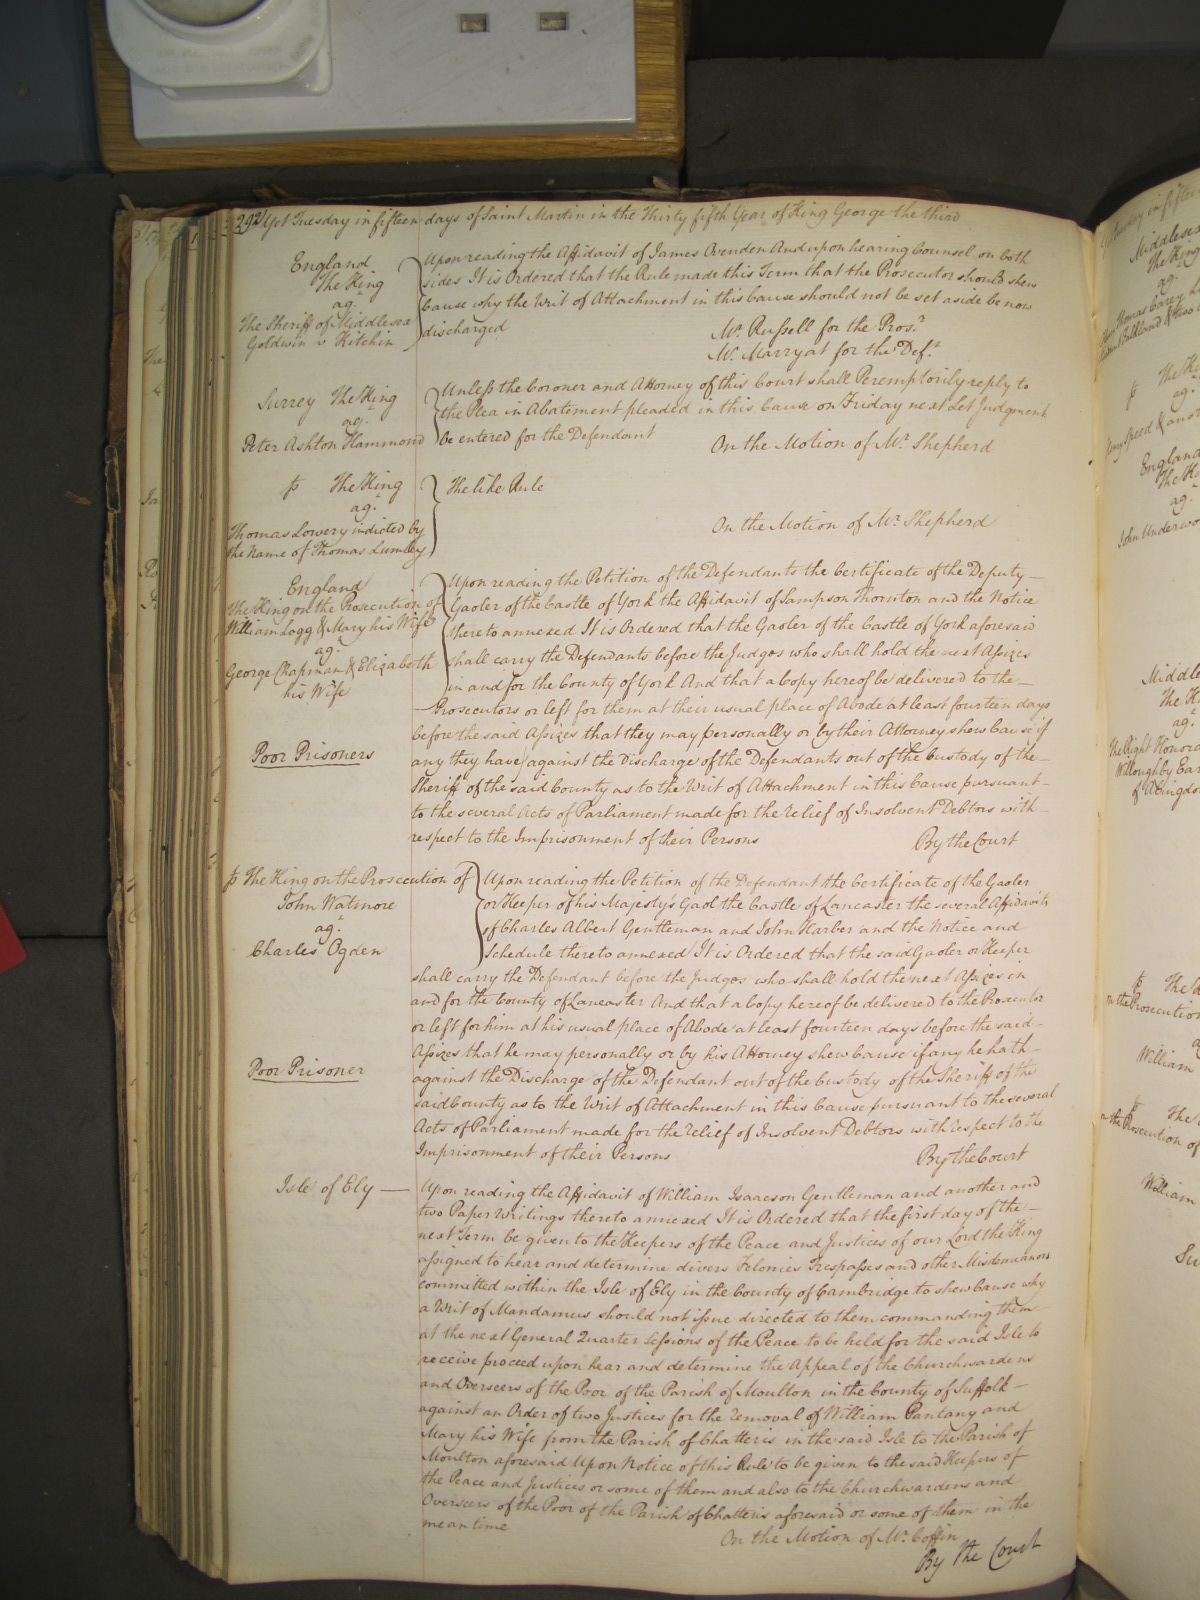 292 Yet Tuesday in fifteen days of Saint Martin in the Thirty fifth Year of King George the third
England
The King
ag.t
The Sheriff of Middlesex
Goldwin v Kitchin
Upon reading the Affidavit of James Ovenden And upon hearing Counsel on both
sides It is Ordered that the Rule made this Term that the Prosecutor should shew
Cause why the Writ of Attachment in this Cause should not be set aside be now
discharged
Mr. Russell for the Pros.r
Mr. Marryat for the Def.t
Surrey The King
ag.t
Peter Ashton Hammond
Unless the Coroner and Attorney of this Court shall Peremptorily reply to
the Plea in Abatement pleaded in this Cause on Friday next Let Judgment
be entered for the Defendant
On the Motion of Mr. Shepherd
The King
ag.t
Thomas Lowery indicted by
the Name of Thomas Lumley
The like Rule
On the Motion of Mr. Shepherd
England
The King on the Prosecution of
William Lagg & Mary his Wife
ag.t
George Chapman & Elizabeth
his Wife
Poor Prisoners
Upon reading the Petition of the Defendants the Certificate of the Deputy
Gaoler of the Castle of York the Affidavit of Sampson Thornton and the Notice
thereto annexed It is Ordered that the Gaoler of the Castle of York aforesaid
shall carry the Defendants before the Judges who shall hold the next Assizes
in and for the County of York And that a Copy hereof be delivered to the
Prosecutors or left for them at their usual place of Abode at least fourteen days
before the said Assizes that they may personally or by their Attorney shew Cause if
any they have against the Discharge of the Defendants out of the Custody of the
Sheriff of the said County as to the Writ of Attachment in this Cause pursuant
to the several Acts of Parliament made for the Relief of Insolvent Debtors with
respect to the Imprisonment of their Persons
By the Court
The King on the Prosecution of
John Watmore
ag.t
Charles Ogden
Poor Prisoner
Upon reading the Petition of the Defendant the Certificate of the Gaoler
or Keeper of his Majesty's Gaol the Castle of Lancaster the several Affidavits
of Charles Albert Gentleman and John Harber and the Notice and
Schedule thereto annexed It is Ordered that the said Gaoler or Keeper
shall carry the Defendant before the Judges who shall hold the next Assizes in
and for the County of Lancaster And that a Copy hereof be delivered to the Prosecutor
or left for him at his usual place of Abode at least fourteen days before the said
Assizes that he may personally or by his Attorney shew Cause if any he hath
against the Discharge of the Defendant out of the Custody of the Sheriff of the
said County as to the Writ of Attachment in this Cause pursuant to the several
Acts of Parliament made for the Relief of Insolvent Debtors with respect to the
Imprisonment of their Persons
By the Court
Isle of Ely
Upon reading the Affidavit of William Isaacson Gentleman and another and
two Paper Writings thereto annexed It is Ordered that the first day of the
next Term be given to the Keepers of the Peace and Justices of our Lord the King
assigned to hear and determine divers Felonies Trespasses and other Misdemeanors
committed within the Isle of Ely in the County of Cambridge to shew Cause why
a Writ of Mandamus should not issue directed to them commanding them
at the next General Quarter Sessions of the Peace to be held for the said Isle to
receive proceed upon hear and determine the Appeal of the Churchwardens
and Overseers of the Poor of the Parish of Moulton in the County of Suffolk
against an Order of two Justices for the Removal of William Pantany and
Mary his Wife from the Parish of Chatteris in the said Isle to the Parish of
Moulton aforesaid Upon Notice of this Rule to be given to the said Keepers of
the Peace and Justices or some of them and also to the Churchwardens and
Overseers of the Poor of the Parish of Chatteris aforesaid or some of them in the
mean time
On the Motion of Mr. Coffin
By the Court
Middlesex
The King
ag.t
England
ag.t
John Underwo
Middle
ag.t
The Right Honora
Willoughby Ear
of Abingdon
on the Prosecution
William
on the Prosecution of
William